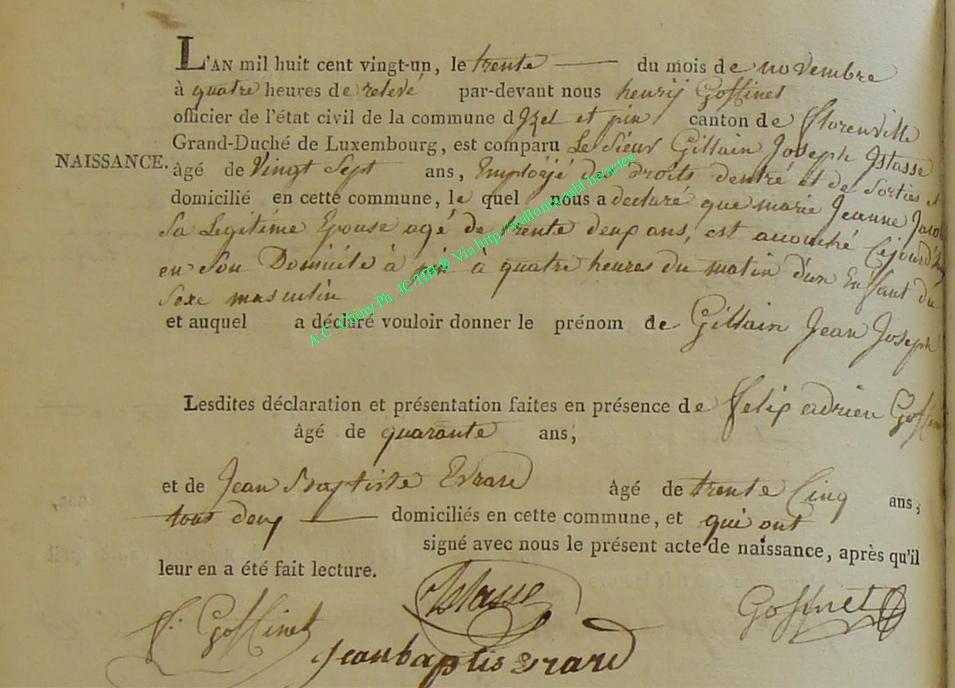 L'AN mil huit cent vingt-un, le trente du mois de novembre
à quatre heures de relevé par-devant nous henrij Goffinet
officier de l'état civil de la commune d'Izel et pin canton de florenville
Grand-Duché de Luxembourg, est comparu Le Sieur Gillain Joseph Istasse
NAISSANCE. âgé de Vingt Sept ans, Employé des droits d'entré et de Sorties et
domicilié en cette commune, le quel nous a declaré que marie Jeanne Jacob
Sa Legitime Epouse agé de trente deux ans, est accouché Cejourd'huy
en Son Domicile à à quatre heures du matin d'un Enffant du
Sexe masculin
et auquel a déclaré vouloir donner le prénom de Gillain Jean Joseph
Lesdites déclaration et présentation faites en présence de felix adrien Goffinet
âgé de quarante ans,
et de Jean Baptiste Evrard âgé de trente Cinq ans,
tous deux domiciliés en cette commune, et qui ont
signé avec nous le présent acte de naissance, après qu'il
leur en a été fait lecture.
Istasse
f. Goffinet Goffinet
Jean baptis evrard
A.C. Chiny Ph. JC